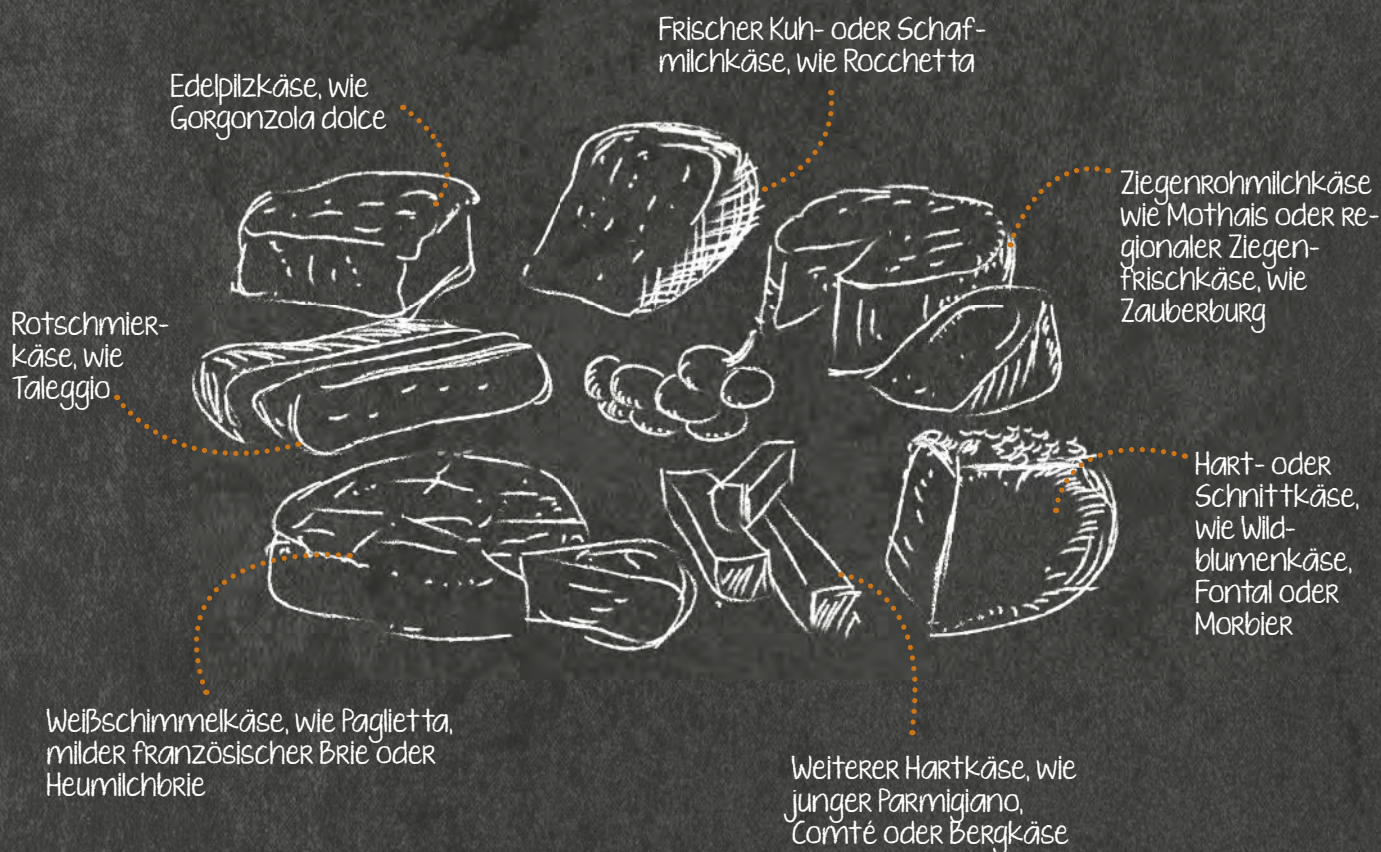 Frischer Kuh- oder Schaf-
milchkäse, wie Rocchetta
Edelpilzkäse, wie
Gorgonzola dolce
Ziegenrohmilchkäse
wie Mothais oder re-
gionaler Ziegen-
frischkäse, wie
Zauberburg
Rotschmier-
käse, wie
Taleggio
Hart- oder
Schnittkäse,
wie Wild-
blumenkäse,
Fontal oder
Morbier
Weißschimmelkäse, wie Paglietta,
milder französischer Brie oder
Heumilchbrie
Weiterer Hartkäse, wie
junger Parmigiano,
Comté oder Bergkäse